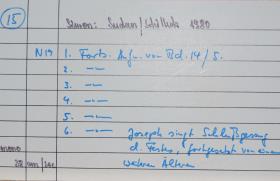 15
Simon: Sudan/Schilluk 1980
N19 1. Forts. Aufn. von Bd. 14/5.
2. -"-
3. -"-
4. -"-
5. -"-
6. -"- Joseph singt Schlußgesang
d. Festes, fortgesetzt von einem
weiteren Älteren
mono